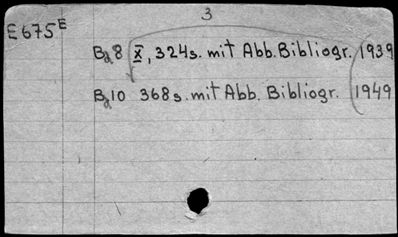 3
E675E
Bd8 X, 324s. mit Abb. Bibliogr. 1939
Bd10 368s. mit Abb. Bibliogr. 1949